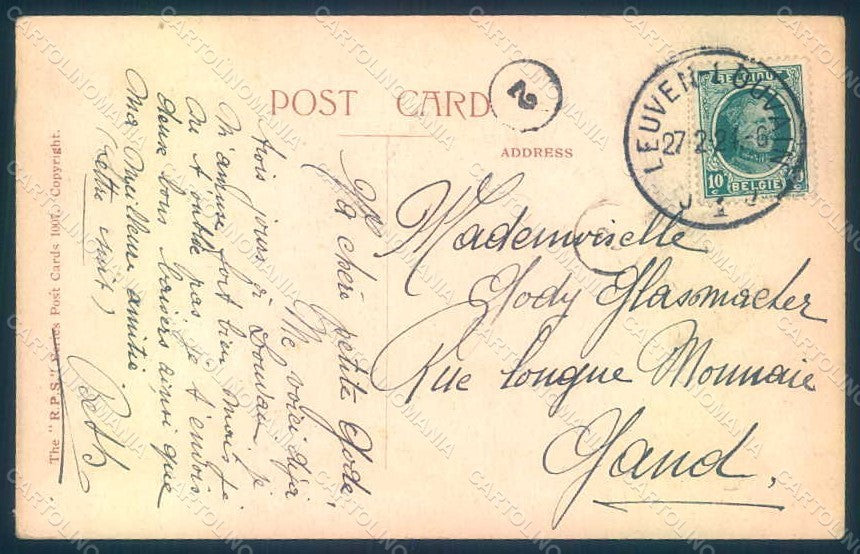 POST CARD
ADDRESS
2
LEUVEN LOUVAIN
27 2 24
BELGIQUE
10c BELGIË
Mademoiselle
Gody Glasmacher
Rue longue Monnaie
Gand,
Ma chère petite Gode,
Me voici déjà
trois jours à Louvain je
m'amuse fort bien mais je
ne t'oublie pas je t'envois
deux bons baisers ainsi que
ma meilleure amitié
(lettre suit)
The "R.P.S." Series Post Cards 1007. Copyright.
CARTOLINOMANIA